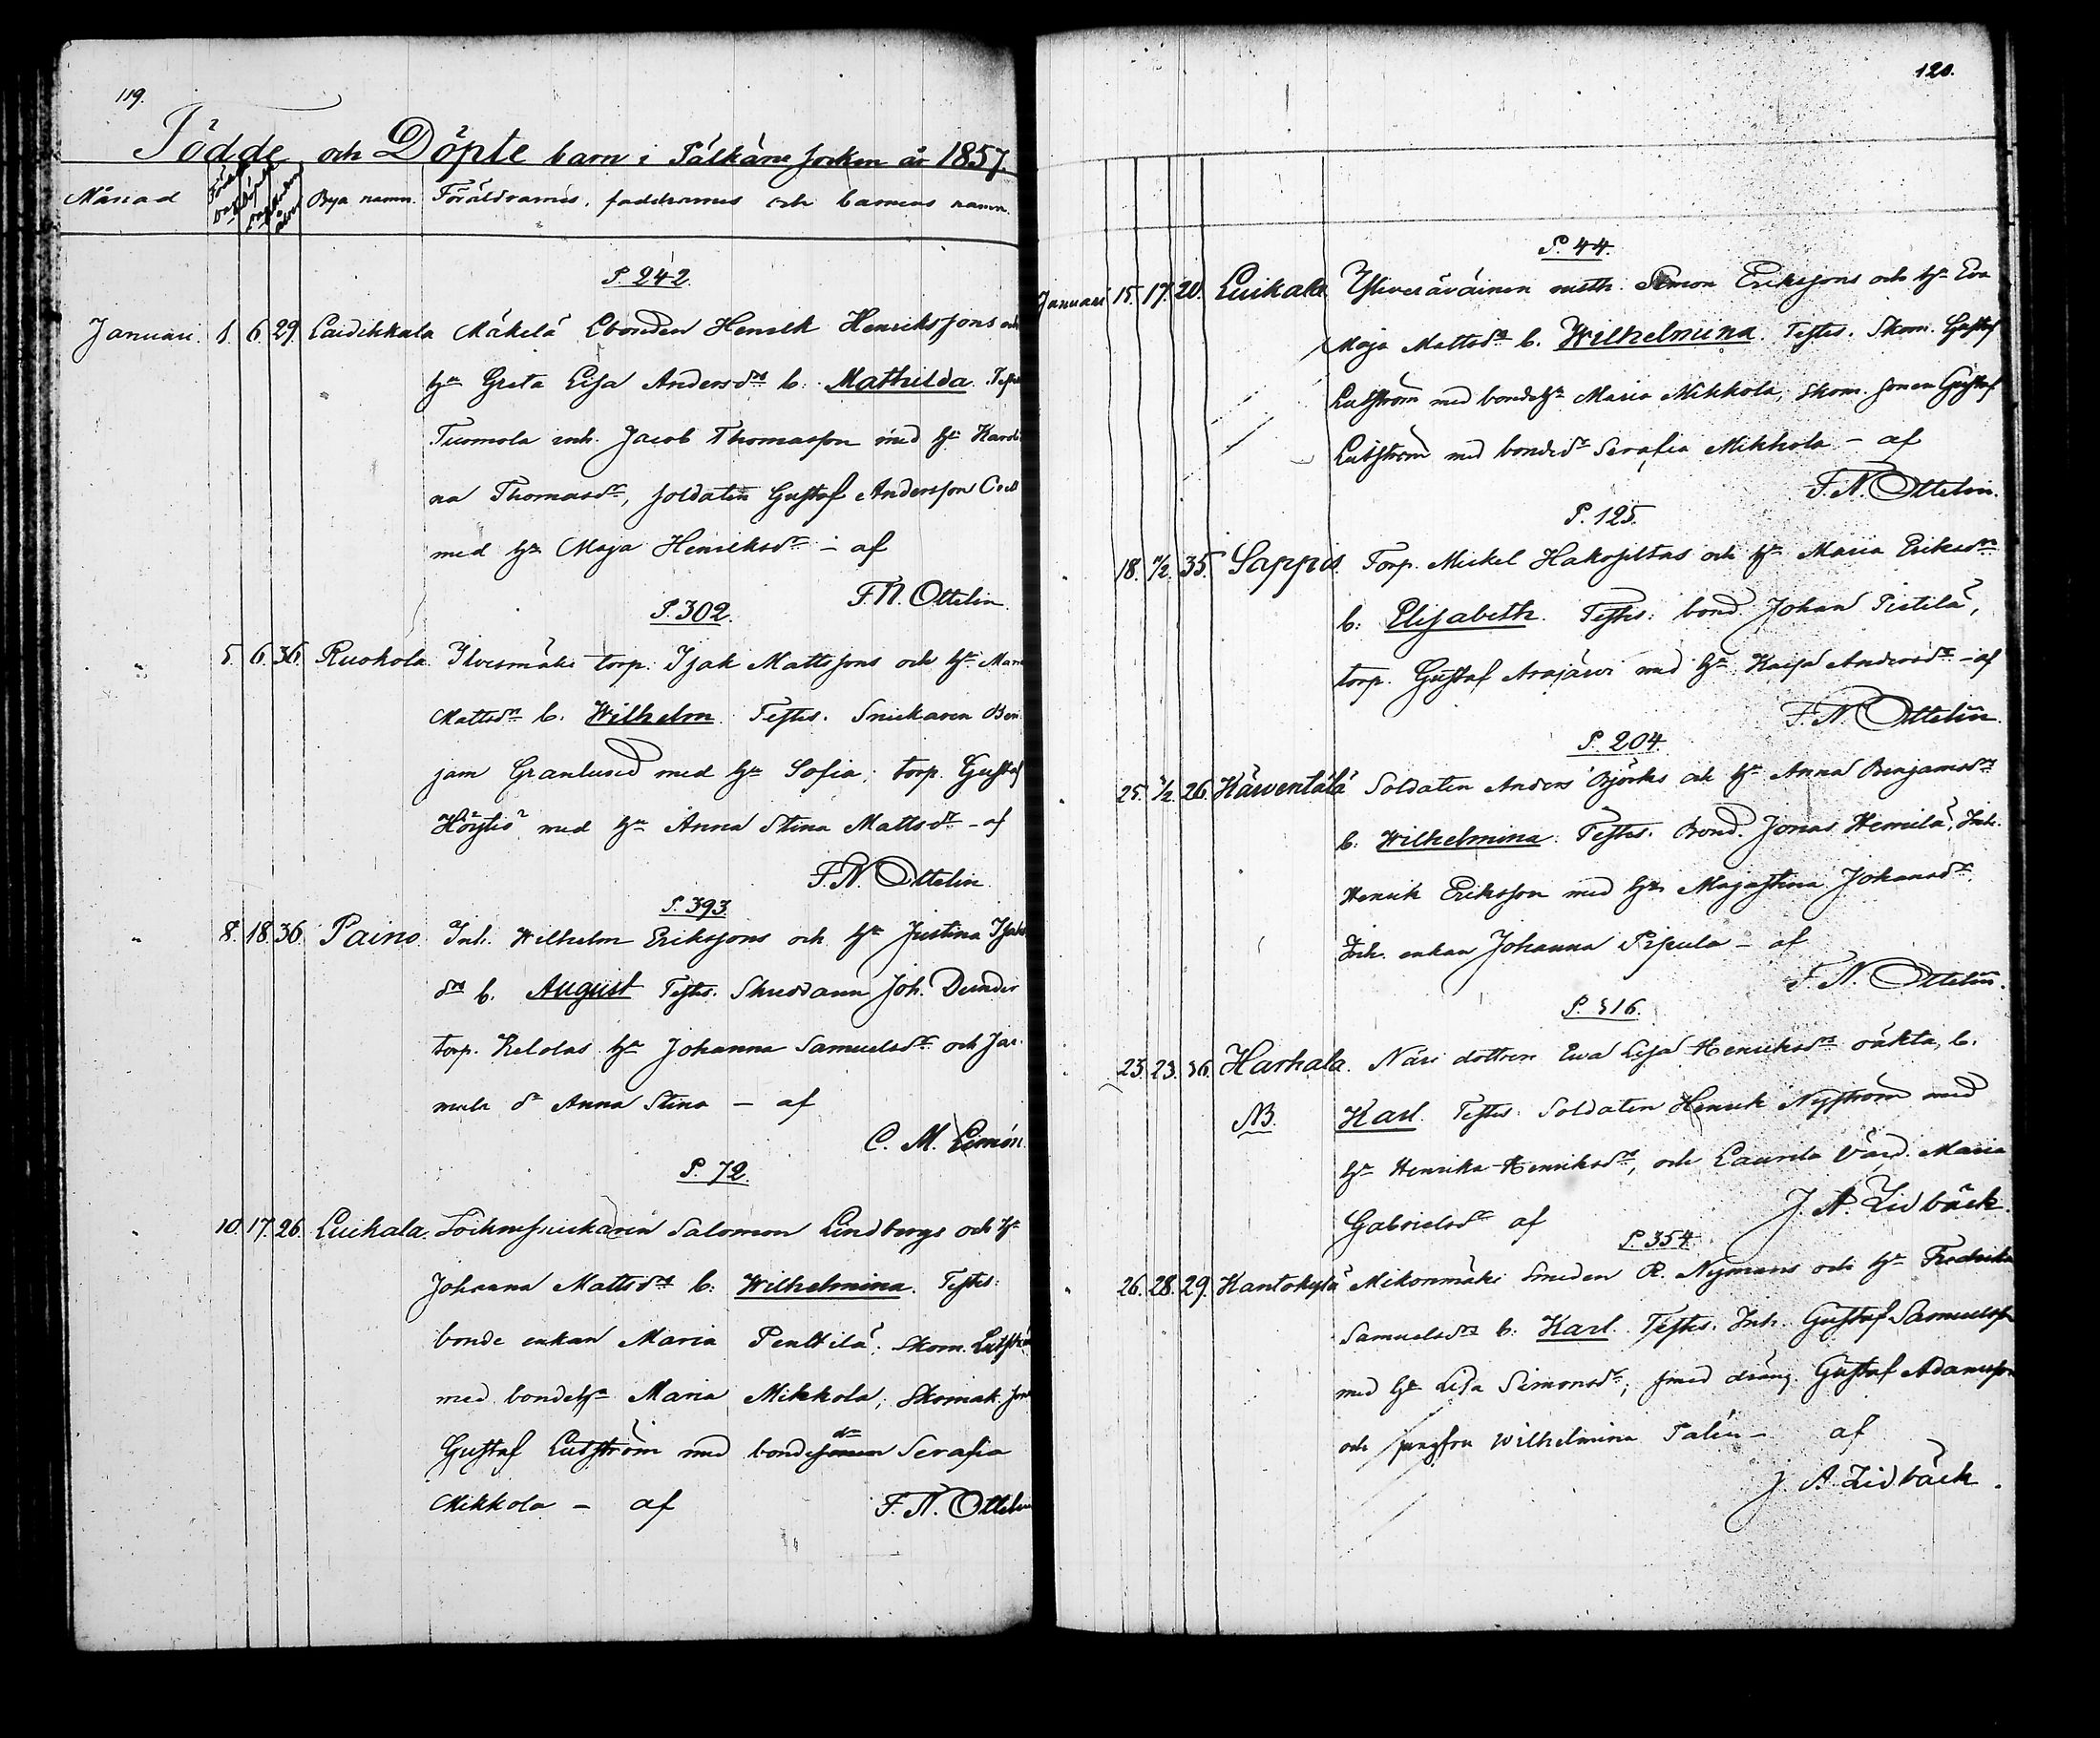 119.
Födde och Döpte barn i Pälkäne Socken år 1857.
Månad Bya namn. Föräldrarnes, faddrarnes och barnens namn.
P. 242.
Januari. 1. 6. 29. Laitikkala Mäkelä Lbonden Henrik Henrikssons och
h: Greta Lisa Andersdrs b. Mathilda. Testes
Tuomola inh. Jacob Thomasson med h: Karoli
na Thomasdr, soldaten Gustaf Andersson
med h: Maja Henriksdr – af
F. N. Ottelin
P. 302.
" 5. 6. 36. Ruokola. Ilvesmäki torp. Isak Mattssons och h: Maria
Mattsdrs b. Wilhelm. Testes. Snickaren Ben
jam Granlund med h: Sofia; torp. Gustaf
med h: Anna Stina Mattsdr – af
F. N. Ottelin.
P. 393.
" 8. 18. 36. Painο. Inh. Wilhelm Erikssons och h: Justina Isaks
drs b. August Testes. Skreddaren Joh.
torp. Kelolas h: Johanna Samuelsdr och
dr Anna Stina – af
C. M. Limón.
P. 72.
" 10. 17. 26. Luikala. Socknesnickaren Salomon Lindbergs och h:
Johanna Mattsdrs b: Wilhelmina. Testes:
bonde enkan Maria Penttilä; Skom. Lutström
med bondeh: Maria Mikkola; Skomak. son
dr
Gustaf Lutström med bondesonen Serafia
Mikkola – af F. N. Ottelin
120.
P. 44.
Januari 15. 17. 20. Luikala Yliveräväinen Simon Erikssons och h: Eva
Maja Mattsdrs b. Wilhelmina. Testes. Skom. Gustaf
Lutström med bondeh: Maria Mikkola, skom. sonen Gustaf
Lutström med bondedr Serafia Mikkola – af
F. N. Ottelin.
P. 125.
" 18. 1/2. 35. Sappis. Torp. Mickel Hakosiltas och h: Maria Eriksdrs
b: Elisabeth. Testes: bond. Johan Pistilä,
torp. Gustaf Arajärvi med h: Kaisa Andersdr – af
F. N. Ottelin.
P. 204.
" 25. 1/2. 26. Kärventälä Soldaten Anders Björks och h: Anna Benjamsdrs
b: Wilhelmina. Testes. Bond. Jonas Hemilä, Inh.
Henrik Eriksson med h: Majastina Johansdr.
Inh. enkan Johanna Pispula – af
F. N. Ottelin.
P. 316.
" 23. 23. 36. Harhala. Näri dottren Ewa Lisa Henriksdrs oäkta b.
NB. Karl. Testes. Soldaten Henrik Nyström med
h: Henrika Henriksdr, och Laurila värd. Maria
Gabrielsdr af J. A. Lidbäck.
P. 354.
" 26. 28. 29. Kantokylä Mikonmäki Smeden R. Nymans och h: Fredrika
Samuelsdrs b: Karl. Testes. Inh. Gustaf Samuelsson
med h: Lisa Simonsdr; smed dräng. Gustaf Adamsson
och jungfru Wilhelmina Palén – af
J. A. Lidbäck.